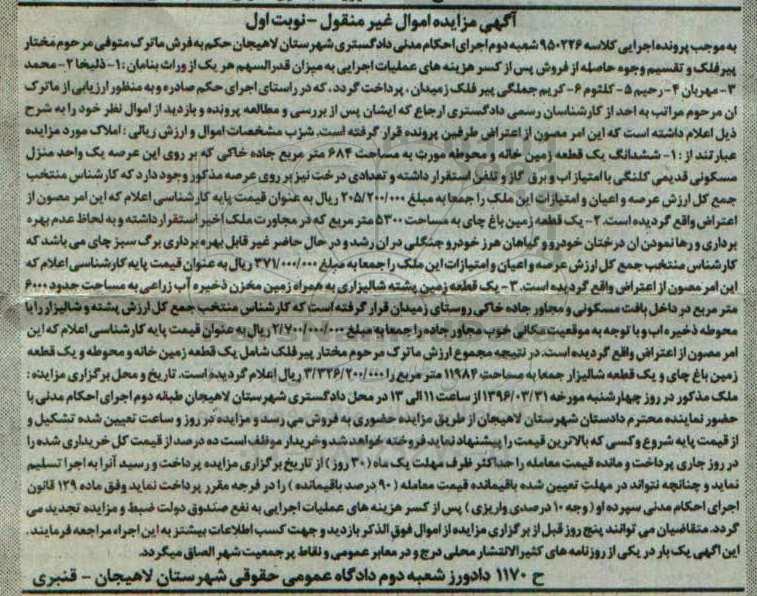 آگهی مزایده اموال غیر منقول -نوبت اول
به موجب پرونده اجرایی کلاسه ۹۵۰۲۲۶ شعبه دوم اجرای احکام مدنی دادگستری شهرستان لاهیجان حکم به فرش ماترک متوفی مرحوم مختار
پیر فلک و تقسیم وجوه حاصله از فروش پس از کسر هزینه های عملیات اجرایی به میزان قدرالسهم هر یک از وراث بنامان : ۱- ذلیخا ۲- محمد
۳- مهربان ۴- رحیم ۵- کلثوم ۶- کریم جملگی پیر فلک زمیدان ، پرداخت گردد، که در راستای اجرای حکم صادره و به منظور ارزیابی از ماترک
ان مرحوم مراتب به احد از کارشناسان رسمی دادگستری ارجاع که ایشان پس از بررسی و مطالعه پرونده و بازدید از اموال نظر خود را به شرح
ذیل اعلام داشته است که این امر مصون از اعتراض طرفین پرونده قرار گرفته است. شزب مشخصات اموال و ارزش ریالی : املاک مورد مزایده
عبارتند از : ۱- ششدانگ یک قطعه زمین خانه و محوطه موردث به مساحت ۶۸۴ متر مربع جاده خاکی که بر روی این عرصه یک واحد منزل
مسکونی قدیمی کلنگی با امتیاز اب و برق گاز و تلفن استقرار داشته و تعدادی درخت نیز بر روی عرصه مذکور وجود دارد که کارشناس منتخب
جمع کل ارزش عرصه و اعیان و امتیازات این ملک را جمعا به مبلغ ۲۰۵/۲۰۰/۰۰۰ ریال به عنوان قیمت پایه کارشناسی اعلام که این امر مصون از
اعتراض واقع گردیده است. ۲- یک قطعه زمین باغ چای به مساحت ۵۳۰۰ متر مربع که در مجاورت ملک اخیر استقرار داشته و به لحاظ عدم بهره
برداری و رها نمودن ان درختان خودرو و گیاهان هرز خودرو و جنگلی در ان رشد و در حال حاضر غیر قابل بهره برداری برگ سبز چای می باشد که
کارشناس منتخب جمع کل ارزش عرصه و اعیان و امتیازات این ملک را جمعا به مبلغ ۳۷۱/۰۰۰/۰۰۰ ریال به عنوان قیمت پایه کارشناسی اعلام که
این امر مصون از اعتراض واقع گردیده است. ۳- یک قطعه زمین پشته شالیزاری به همراه زمین مخزن ذخیره آب زراعی به مساحت حدود ۶۰۰۰
متر مربع در داخل بافت مسکونی و مجاور جاده خاکی روستای زمیدان قرار گرفته است که کارشناس منتخب جمع کل ارزش پشته و شالیزار را با
محوطه ذخیره اب و با توجه به موقعیت مکانی خوب مجاور جاده را جمعا به مبلغ ۲/۷۰۰/۰۰۰/۰۰۰ ریال به عنوان قیمت پایه کارشناسی اعلام که این
امر مصون از اعتراض واقع گردیده است. در نتیجه مجموع ارزش ماترک مرحوم مختار پیر فلک شامل یک قطعه زمین خانه و محوطه و یک قطعه
زمین باغ چای و یک قطعه شالیزار جمعا به مساحت ۱۱۹۸۴ متر مربع را ۳/۳۲۶/۲۰۰/۰۰۰ ریال اعلام گردیده است. تاریخ و محل برگزاری مزایده :
ملک مذکور در روز چهارشنبه مورخه ۱۳۹۶/۰۳/۳۱ از ساعت ۱۱ الی ۱۳ در محل دادگستری شهرستان لاهیجان طبقه دوم اجرای احکام مدنی با
حضور نماینده محترم دادستان شهرستان لاهیجان از طریق مزایده حضوری به فروش می رسد و مزایده در روز و ساعت تعیین شده تشکیل و
از قیمت پایه شروع و کسی که بالاترین قیمت را پیشنهاد نماید فروخته خواهد شد و خریدار موظف است ده درصد از قیمت کل خریداری شده را
در روز جاری پرداخت و مانده قیمت معامله را حداکثر ظرف مهلت یک ماه ( ۳۰ روز ) از تاریخ برگزاری مزایده پرداخت و رسید آنرا به اجرا تسلیم
نماید و چنانچه نتواند در مهلت تعیین شده باقیمانده قیمت معامله ( ۹۰ درصد باقیمانده ) را در فرجه مقرر پرداخت نماید وفق ماده ۱۲۹ قانون
اجرای احکام مدنی سپرده او ( وجه ۱۰ درصدی واریزی ) پس از کسر هزینه های عملیات اجرایی به نفع صندوق دولت ضبط و مزایده تجدید می
گردد. متقاضیان می توانند پنج روز قبل از برگزاری مزایده از اموال فوق الذکر بازدید و جهت کسب اطلاعات بیشتر به این اجراء مراجعه فرمایند.
این اگهی یک بار در یکی از روزنامه های کثیرالانتشار محلی درج و در معابر عمومی و نقاط پرجمعیت شهر الصاق میگردد.
ح ۱۱۷۰ دادورز شعبه دوم دادگاه عمومی حقوقی شهرستان لاهیجان - قنبری